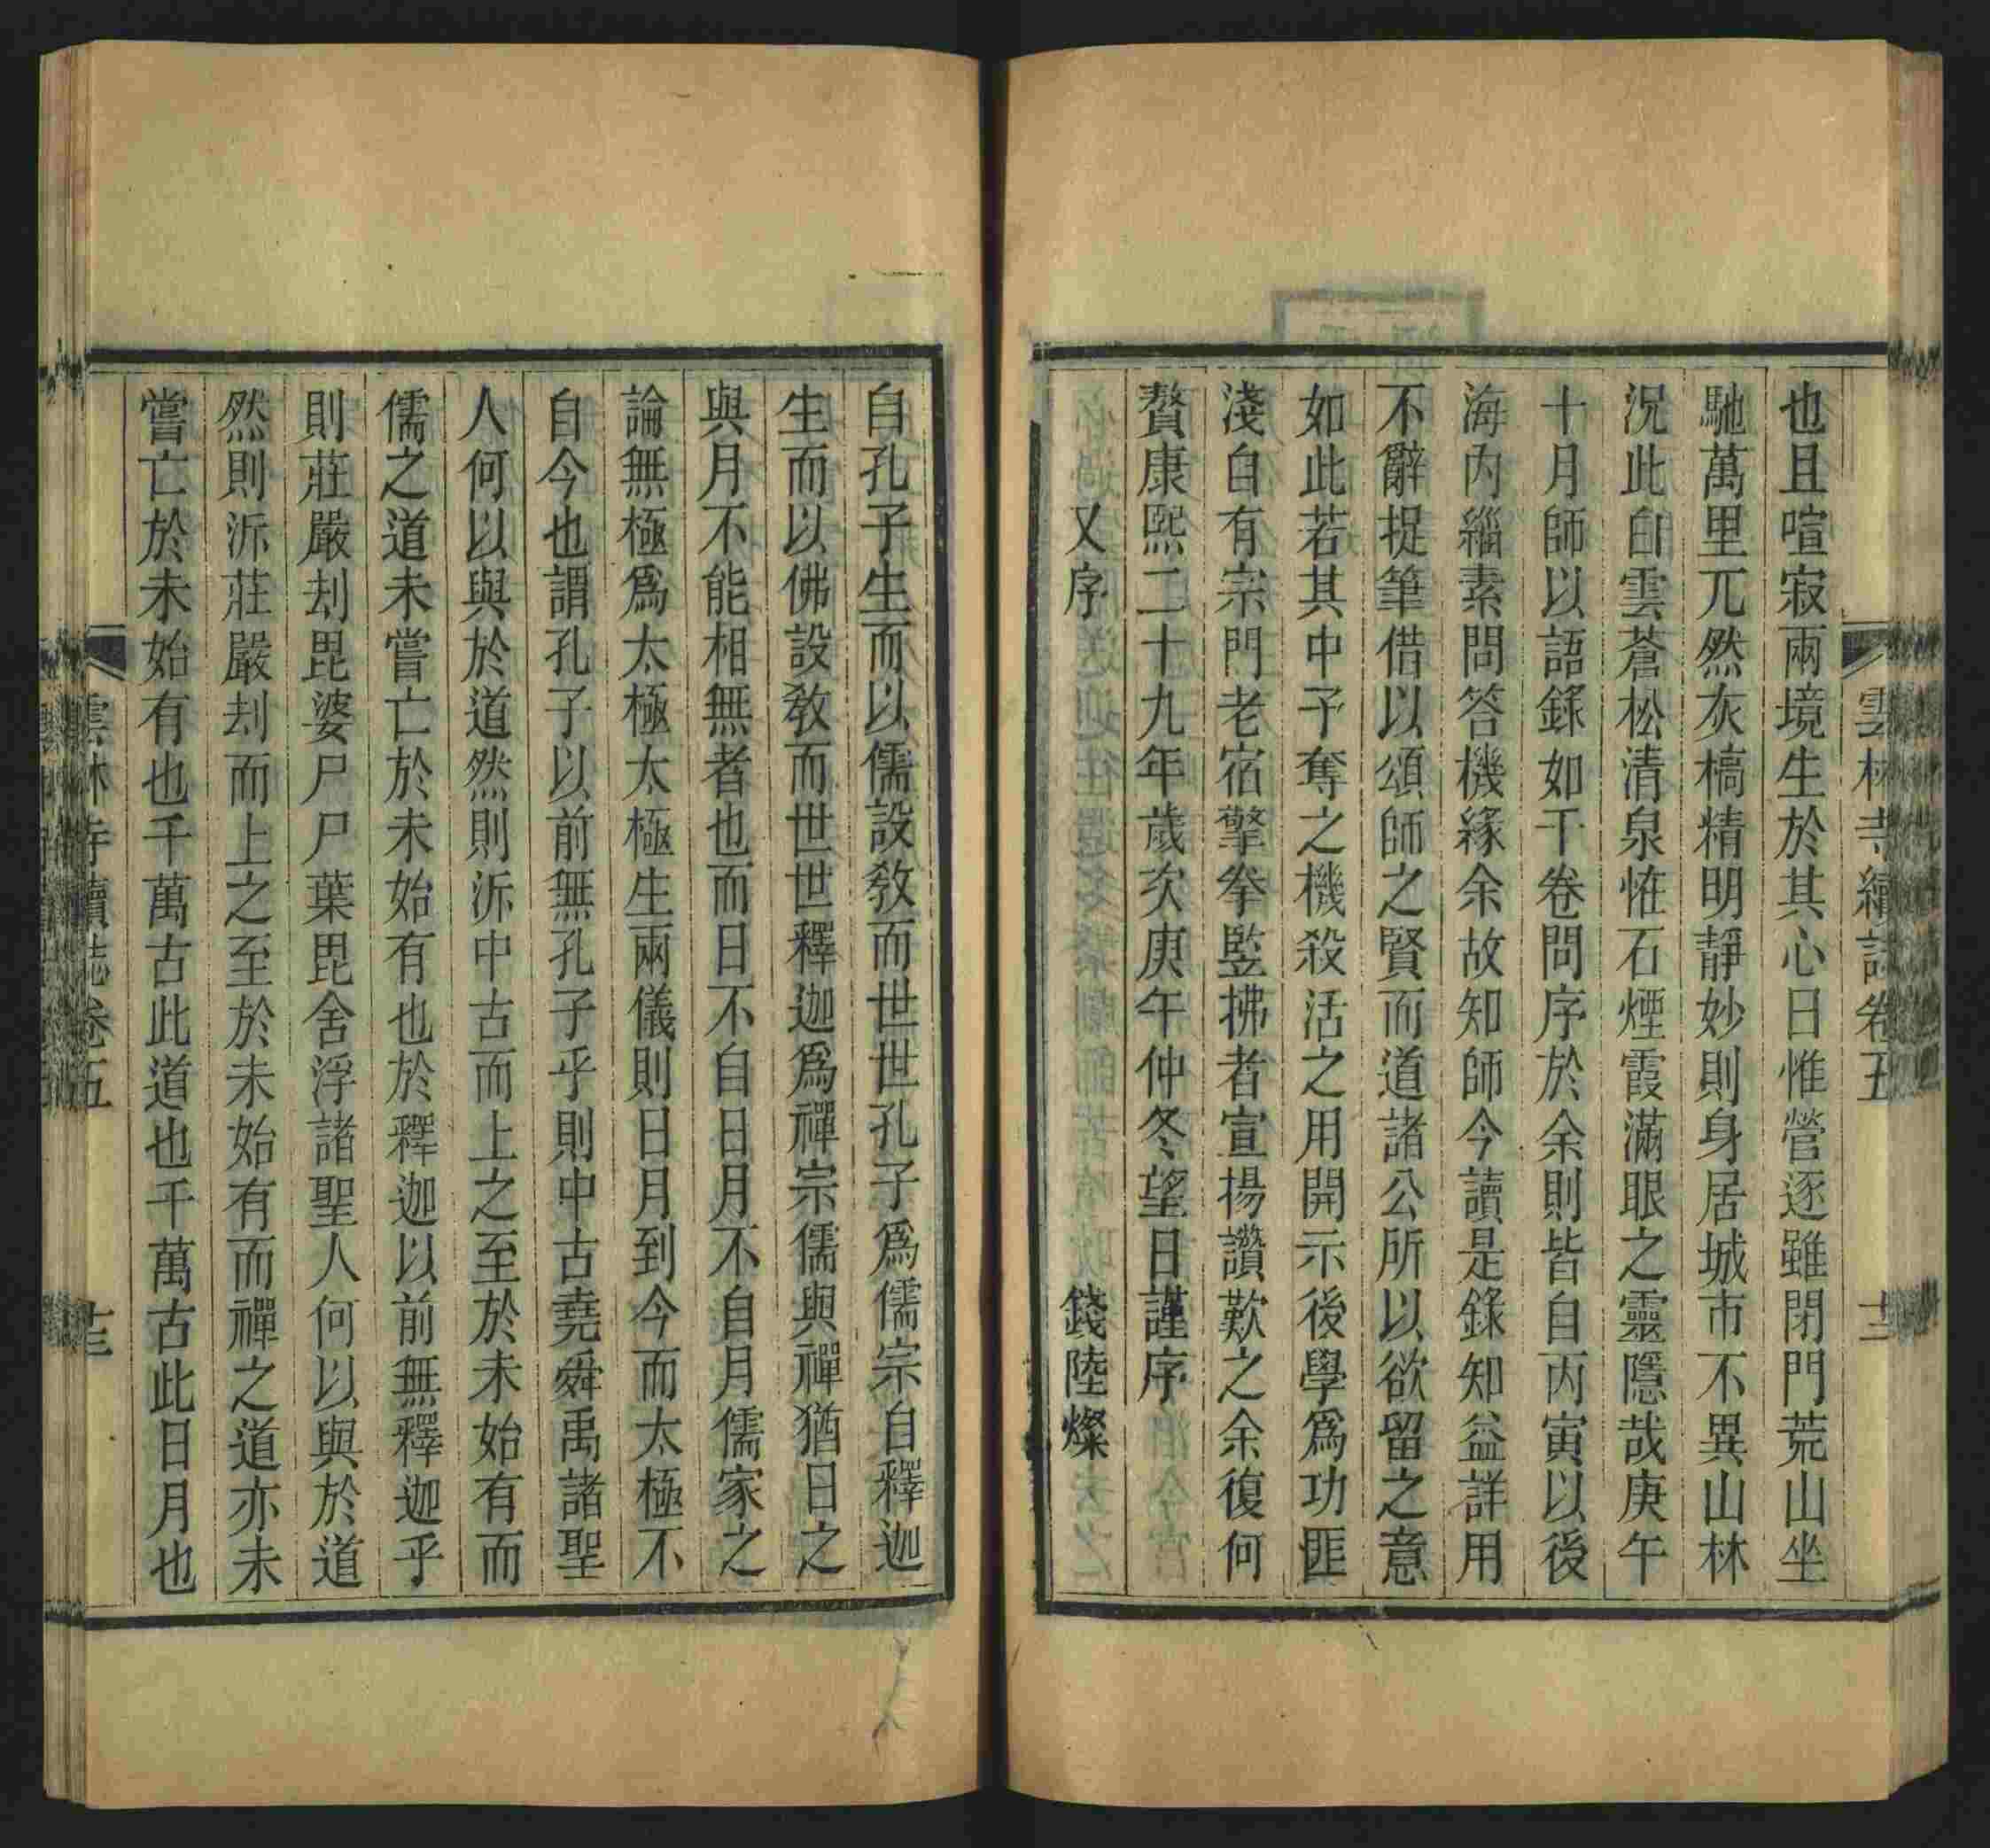 雲林寺續誌卷五
十二
也且喧寂兩境生於其心日惟營逐雖閉門荒山坐
馳萬里兀然灰槁精明靜妙則身居城市不異山林
況此白雲蒼松清泉恠石煙霞滿眼之靈隱哉庚午
十月師以語錄如干卷問序於余則皆自丙寅以後
海內緇素問答機緣余故知師今讀是錄知益詳用
不辭捉筆借以頌師之賢而道諸公所以欲留之意
如此若其中予奪之機殺活之用開示後學爲功匪
淺自有宗門老宿擎拳監拂者宣揚讚歎之余復何
贅康熙二十九年歲次庚午仲冬望日謹序
又序 錢陸燦
自孔子生而以儒設敎而世世孔子爲儒宗自釋迦
生而以佛設敎而世世釋迦爲禪宗儒與禪猶日之
與月不能相無者也而日不自日月不自月儒家之
論無極爲太極太極生兩儀則日月到今而太極不
自今也謂孔子以前無孔子乎則中古堯舜禹諸聖
人何以與於道然則泝中古而上之至於未始有而
儒之道未嘗亡於未始有也於釋迦以前無釋迦乎
則莊嚴刦毘婆尸尸葉毘舍浮諸聖人何以與於道
然則泝莊嚴刦而上之至於未始有而禪之道亦未
嘗亡於未始有也千萬古此道也千萬古此日月也
雲林寺續誌卷五
十三